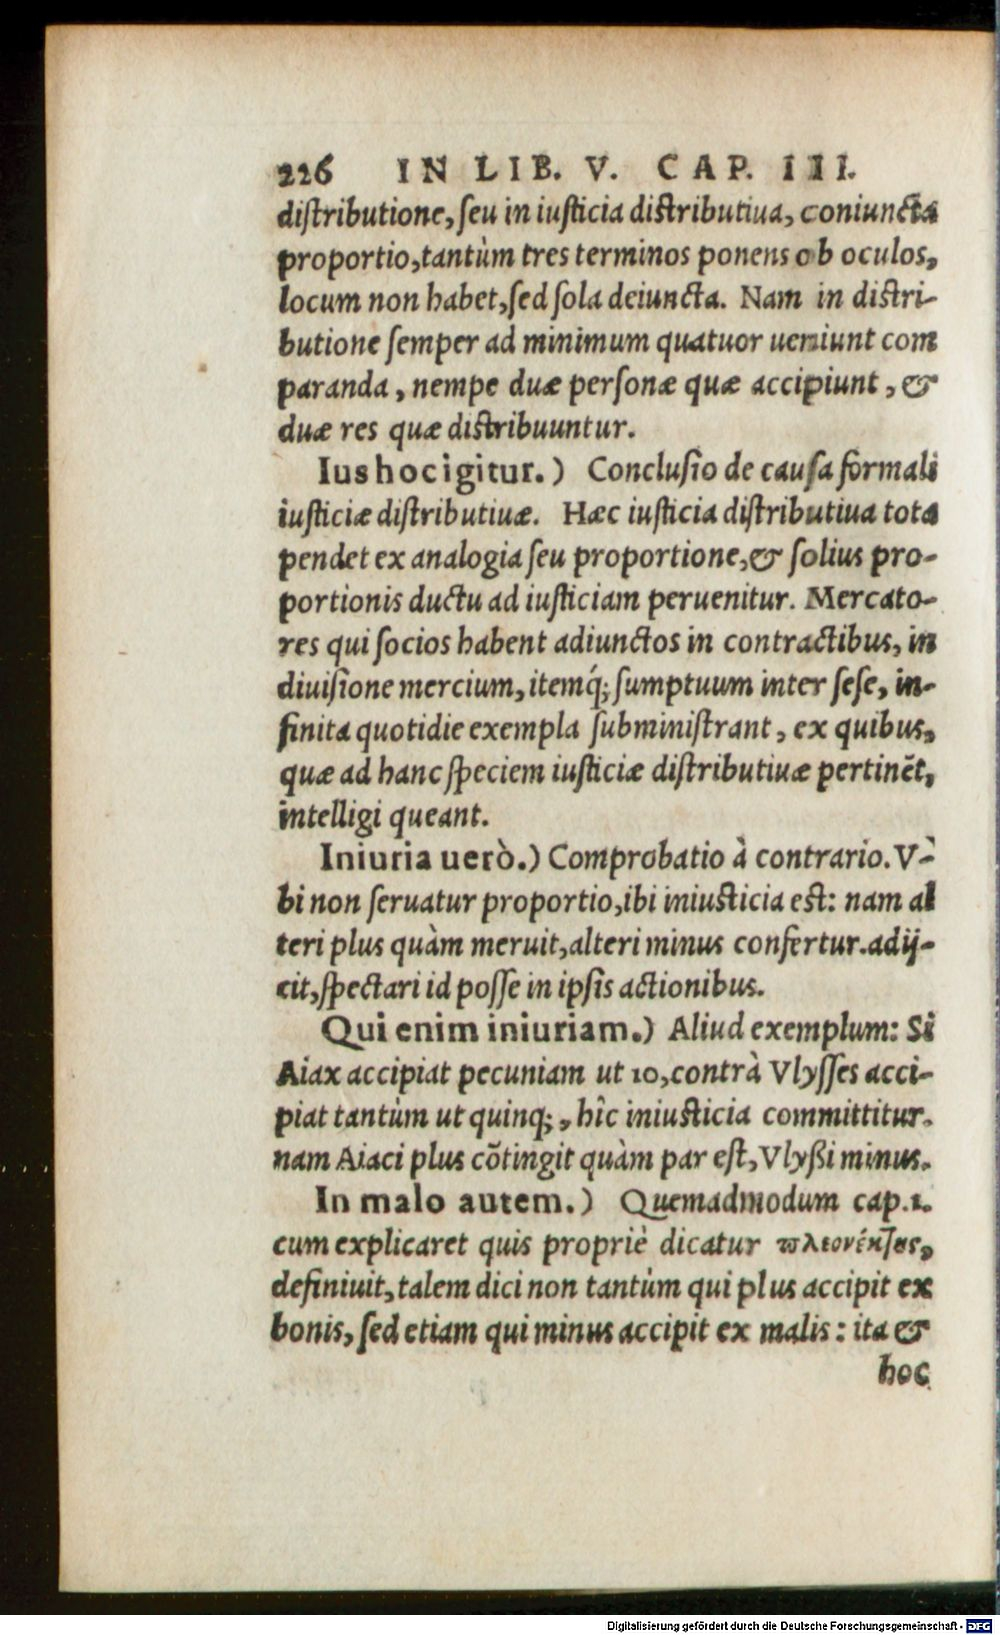 226 IN LIB. V. CAP. III.
distributione, seu in iusticia distributiua, coniuncta
proportio, tantùm tres terminos ponens ob oculos,
locum non habet, sed sola deiuncta. Nam in distri-
butione semper ad minimum quatuor ueniunt com
paranda, nempe duæ personæ quæ accipiunt, &
duæ res quæ distribuuntur.
Ius hoc igitur.) Conclusio de causa formali
iusticiæ distributiuæ. Hæc iusticia distributiua tota
pendet ex analogia seu proportione, & solius pro-
portionis ductu ad iusticiam peruenitur. Mercato-
res qui socios habent adiunctos in contractibus, in
diuisione mercium, itemq́; sumptuum inter sese, in-
finita quotidie exempla subministrant, ex quibus,
quæ ad hanc speciem iusticiæ distributiuæ pertinēt,
intelligi queant.
Iniuria uerò.) Comprobatio à contrario. V̀-
bi non seruatur proportio, ibi iniusticia est: nam al
teri plus quàm meruit, alteri minus confertur. adij-
cit, spectari id posse in ipsis actionibus.
Qui enim iniuriam.) Aliud exemplum: Si
Aiax accipiat pecuniam ut 10, contrà Vlysses acci-
piat tantùm ut quinq;, hîc iniusticia committitur.
nam Aiaci plus cōtingit quàm par est, Vlyßi minus.
In malo autem.) Quemadmodum cap. 1.
cum explicaret quis propriè dicatur πλεονέκτης,
definiuit, talem dici non tantùm qui plus accipit ex
bonis, sed etiam qui minus accipit ex malis: ita &
hoc
Digitalisierung gefördert durch die Deutsche Forschungsgemeinschaft - DFG